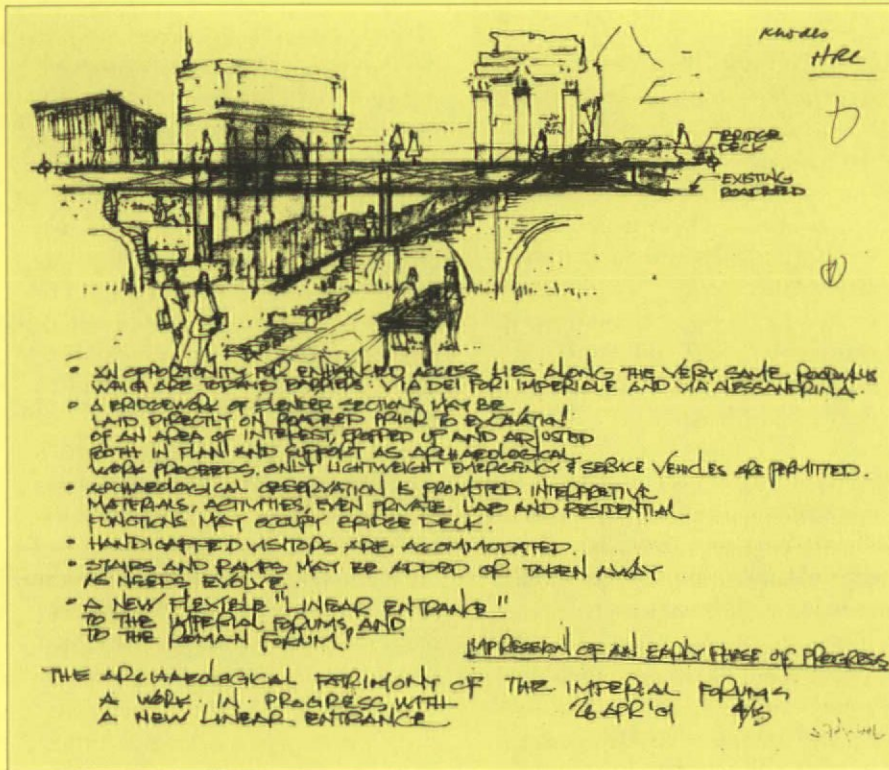 Rhodes
HRL
BRIDGE
DECK
EXISTING
ROADBED
• AN OPPORTUNITY FOR ENHANCED ACCESS LIES ALONG THE VERY SAME
WHICH ARE TODAY BARRIERS: VIA DEI FORI IMPERIALE AND VIA ALESSANDRINA.
• A BRIDGEWORK OF SLENDER SECTIONS MAY BE
LAID DIRECTLY ON ROADBED PRIOR TO EXCAVATION
OF AN AREA OF INTEREST, PROPPED UP AND ADJUSTED
BOTH IN PLAN AND SUPPORT AS ARCHAEOLOGICAL
WORK PROCEEDS. ONLY LIGHTWEIGHT EMERGENCY & SERVICE VEHICLES ARE PERMITTED.
• ARCHAEOLOGICAL OBSERVATION IS PROMOTED. INTERPRETIVE
MATERIALS, ACTIVITIES, EVEN PRIVATE LAB AND RESIDENTIAL
FUNCTIONS MAY OCCUPY BRIDGE DECK.
• HANDICAPPED VISITORS ARE ACCOMMODATED.
• STAIRS AND RAMPS MAY BE ADDED OR TAKEN AWAY
AS NEEDS EVOLVE.
• A NEW FLEXIBLE "LINEAR ENTRANCE"
TO THE IMPERIAL FORUMS, AND
TO THE ROMAN FORUM!
IMPRESSION OF AN EARLY PHASE OF PROGRESS
THE ARCHAEOLOGICAL PATRIMONY OF THE IMPERIAL FORUMS
A WORK IN PROGRESS WITH
A NEW LINEAR ENTRANCE
26 APR '01